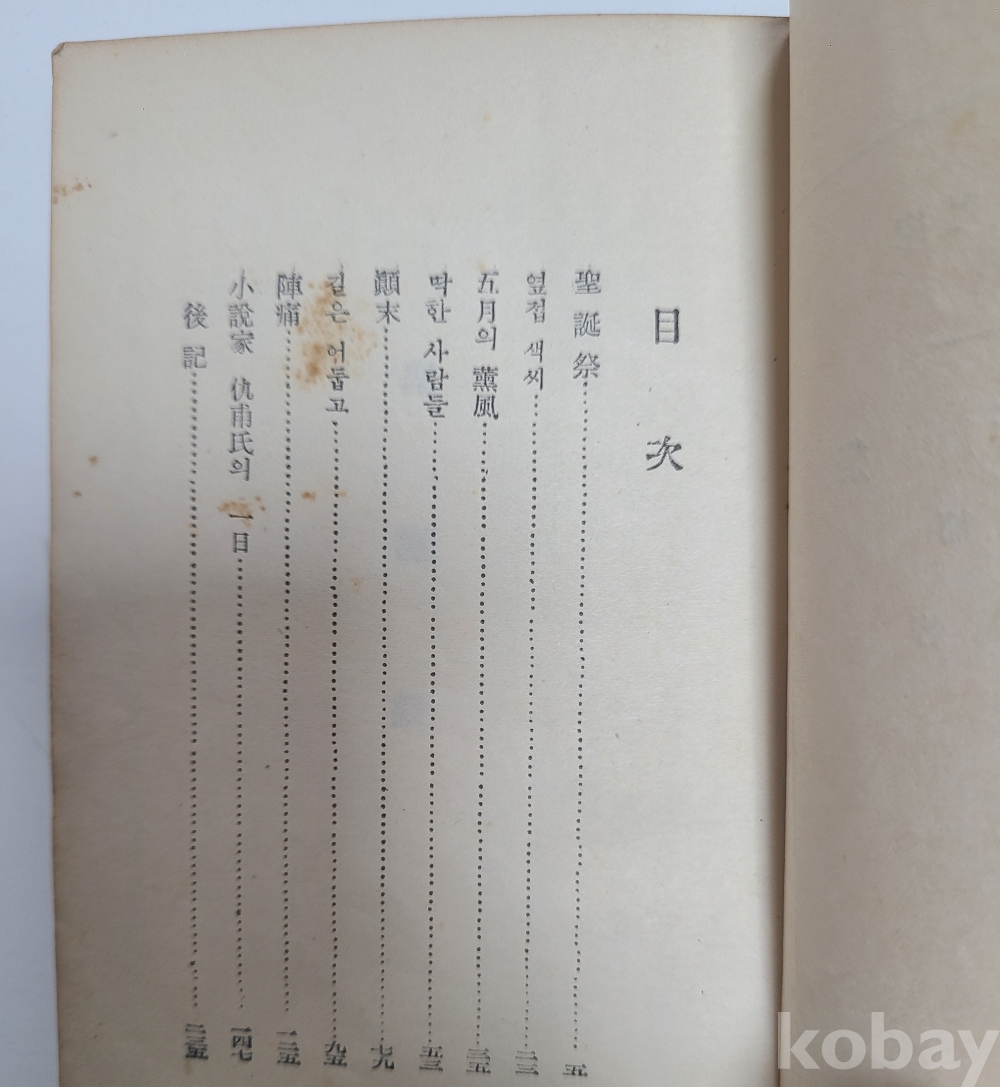 目次
聖誕祭 五
옆집 색씨 二三
五月의 薰風 三五
딱한 사람들 五三
顚末 七九
길은 어둡고 九五
陣痛 一二五
小說家 仇甫氏의 一日 一四七
後記
kobay